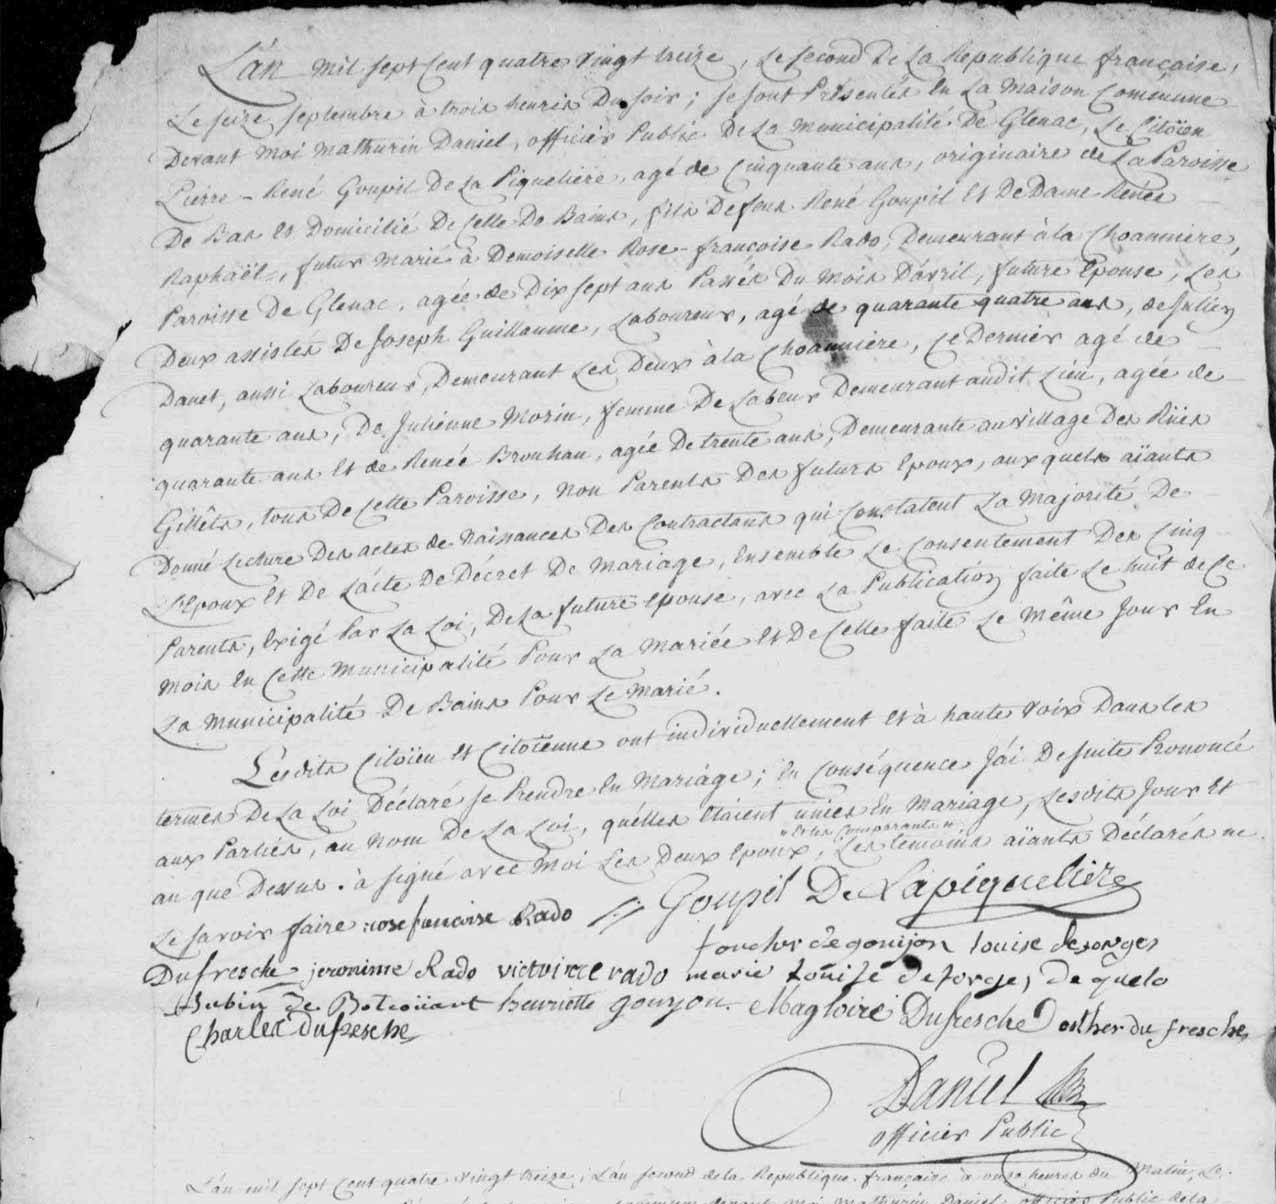 L'an mil sept Cent quatre vingt treize, Le second De La Republique française,
Le seize septembre à trois heures Du soir; se sont Présentés En La Maison Commune
Devant Moi Mathurin Daniel, officier Public De La Municipalité De Glenac, Le Citoïen
Pierre-René Goupil De La Piquelière, agé de Cinquante ans, originaire de La Paroisse
De Bas Et Domicilié De Celle De Bains, fils De feus René Goupil Et De Dame Renée
Raphaël, futur Marié à Demoiselle Rose-françoise Rado, Demeurant à la Choannière,
Paroisse De Glenac, agée de Dix sept ans Passés Du Mois D'avril, future Epouse, Les
Deux assistés De Joseph Guillaume, Laboureur, agé de quarante quatre ans, de Julien
Danet, aussi Laboureur, Demeurant Les Deux à la Choannière, Ce Dernier agé de
quarante ans, De Julienne Morin, femme De Labeur Demeurant audit Lieu, agée de
quarante ans Et de Renée Brouhan, agée De trente ans, Demeurante au village Des Rües
Gillêts, tous De Cette Paroisse, Non Parents Des futurs Epoux, aux quels aïants
Donné Lecture Des actes de Naissances Des Contractans qui Constatent La Majorité De
L'Epoux Et De L'acte De Décret De Mariage, Ensemble Le Consentement Des Cinq
Parents, Exigé Par La Loi, De La future Epouse, avec La Publication faite Le huit de Ce
Mois En Cette Municipalité Pour La Mariée Et De Celle faite Le Même Jour En
La Municipalité De Bains Pour Le Marié.
Lesdits Citoïen Et Citoïenne ont individuellement Et à haute voix Dans les
termes De La Loi Déclaré se Prendre En Mariage; En Conséquence J'ai De suite Prononcé
aux Parties, au Nom De La Loi, qu'elles Etaient unies En Mariage, Lesdits Jour Et
an que Dessus. à signé avec Moi Les Deux Epoux, "Et les Comparants" Les temoins aïants Déclarés ne
Le savoir faire rose francoise Rado Goupil De Lapiquelliere
foucher de gouijon louise desorges
Dufresche jeronime Rado victoire rado marie Louise deforges de quelo
Aubin De Botcouart henriette gouyon Magloire Dufresche esther du fresche
Charles dufresche
Daniel
officier Public
L'an mil sept Cent quatre vingt treize, L'an second de la Republique française à onze heures du Matin, Le
devant moi Mathurin Daniel officier Public de la